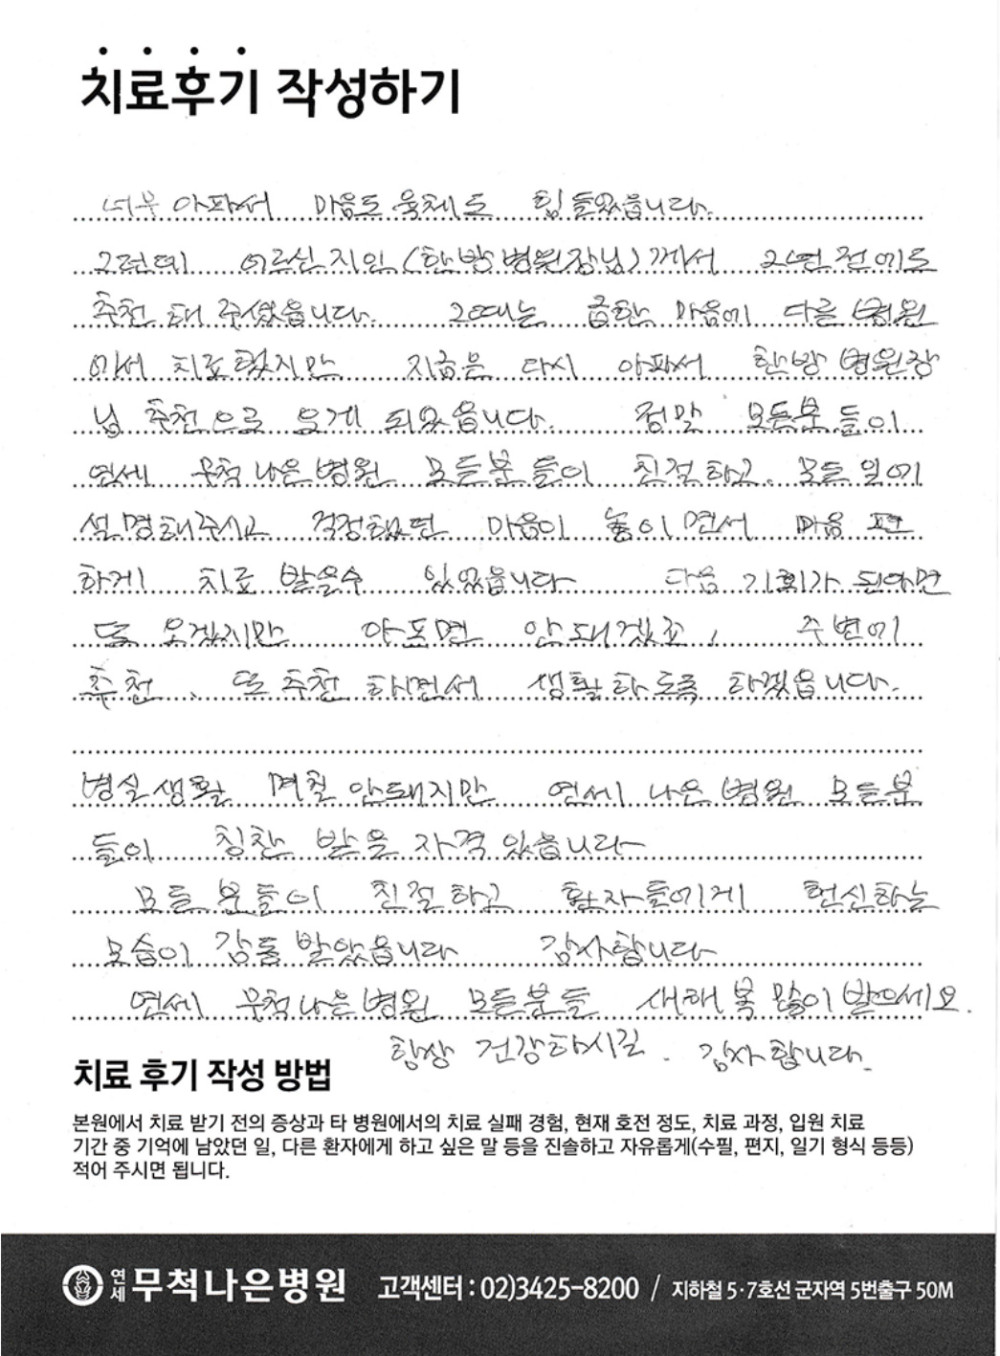 치료후기 작성하기
너무 아파서 마음도 육체도 힘들었습니다.
그런데 어르신 지인(한방병원장님)께서 2년전에도
추천해 주셨읍니다. 그때는 급한 마음에 다른 병원
에서 치료했지만 지금은 다시 아파서 한방병원장
님 추천으로 오게 되었읍니다. 정말 모든분들이
연세 무척나은병원 모든분들이 친절하고. 모든 일에
설명해주시고 걱정했던 마음이 놓이면서 마음 편
하게 치료 받을수 있었읍니다 다음 기회가 된다면
또 오겠지만 아프면 안돼겠죠, 주변에
추천, 또 추천 하면서 생활하도록 하겠읍니다.
병실생활 몇칠 안돼지만 연세 나은병원 모든분
들이 칭찬 받을 자격 있습니다
모든 분들이 친절하고 환자들에게 헌신하는
모습이 감동 받았읍니다 감사합니다
연세 무척나은병원 모든분들 새해 복 많이 받으세요.
항상 건강하시길. 감사합니다.
치료 후기 작성 방법
본원에서 치료 받기 전의 증상과 타 병원에서의 치료 실패 경험, 현재 호전 정도, 치료 과정, 입원 치료
기간 중 기억에 남았던 일, 다른 환자에게 하고 싶은 말 등을 진솔하고 자유롭게(수필, 편지, 일기 형식 등등)
적어 주시면 됩니다.
연세 무척나은병원 고객센터 : 02)3425-8200 / 지하철 5·7호선 군자역 5번출구 50M